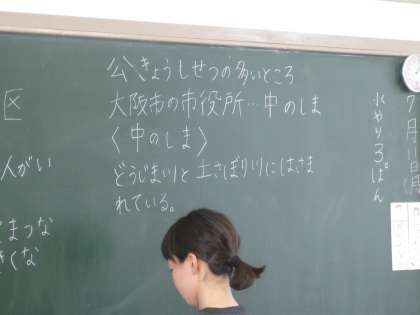 公きょうしせつの多いところ
大阪市の市役所…中のしま
〈中のしま〉
どうじま川と土さぼり川にはさま
れている。
7月11日
水やり3ぱん
区
人がい
まつな
くな